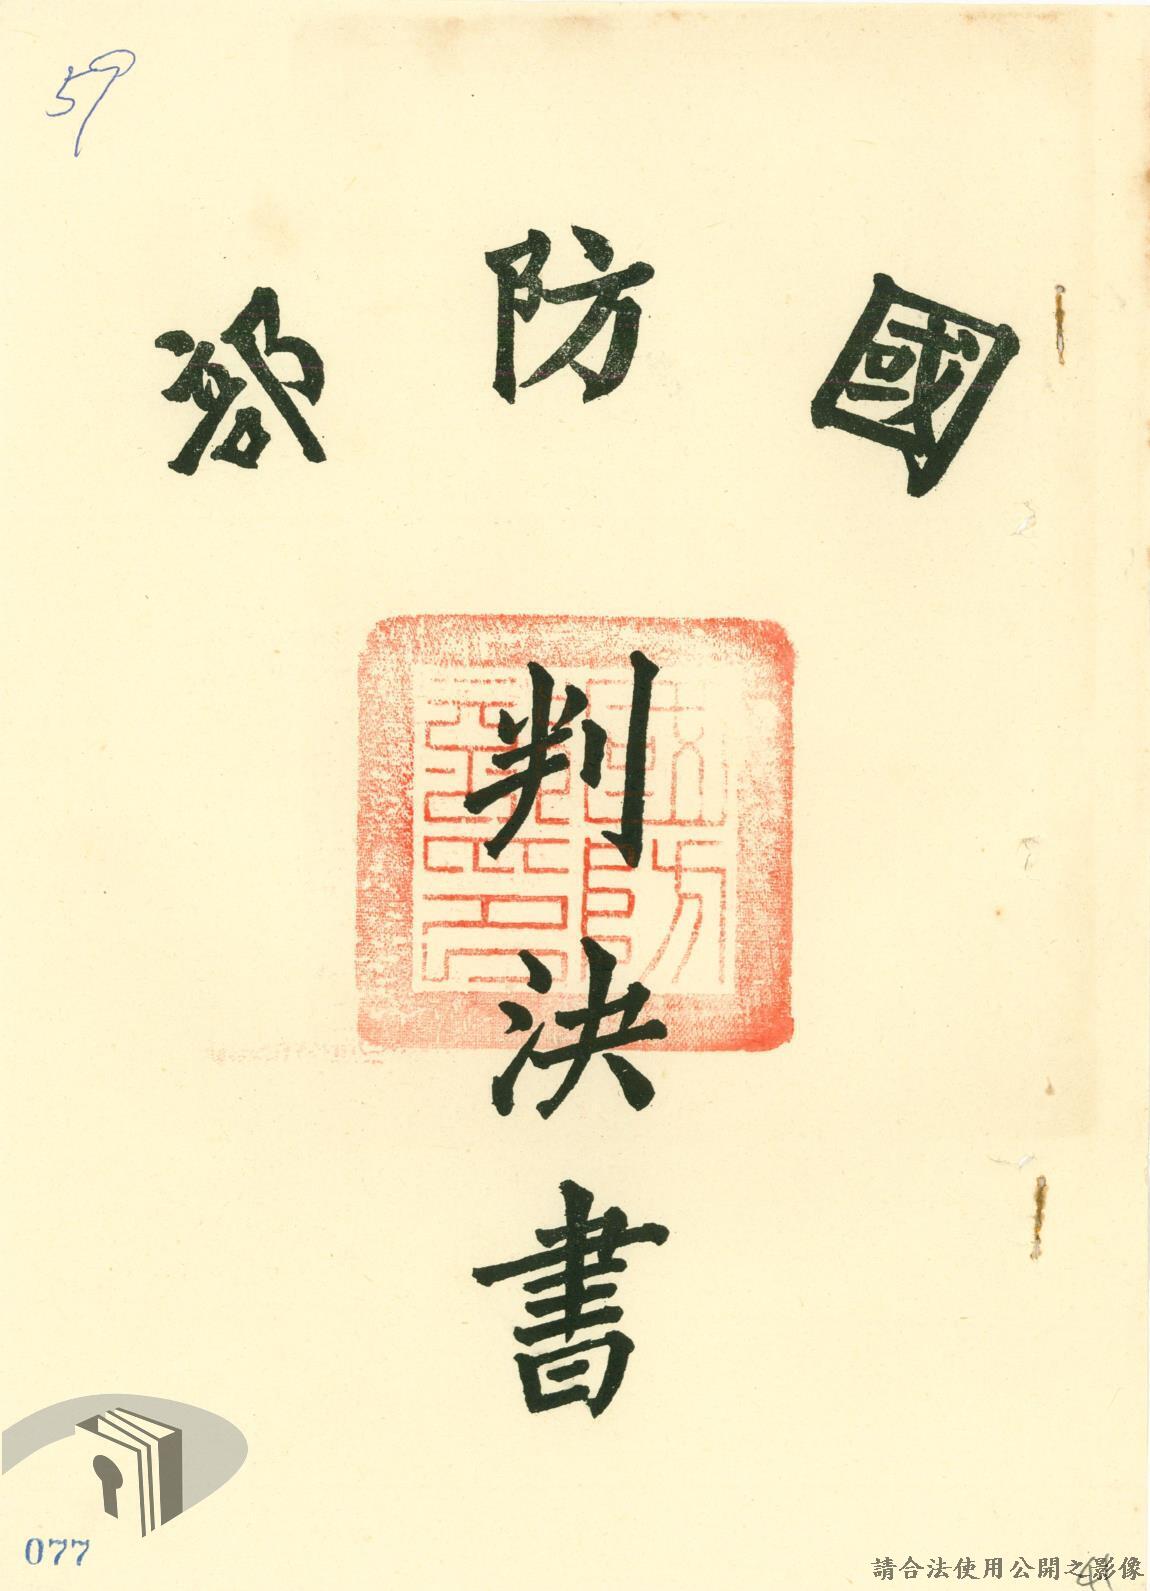 59
國防部
判決書
國防部印
077
請合法使用公開之影像